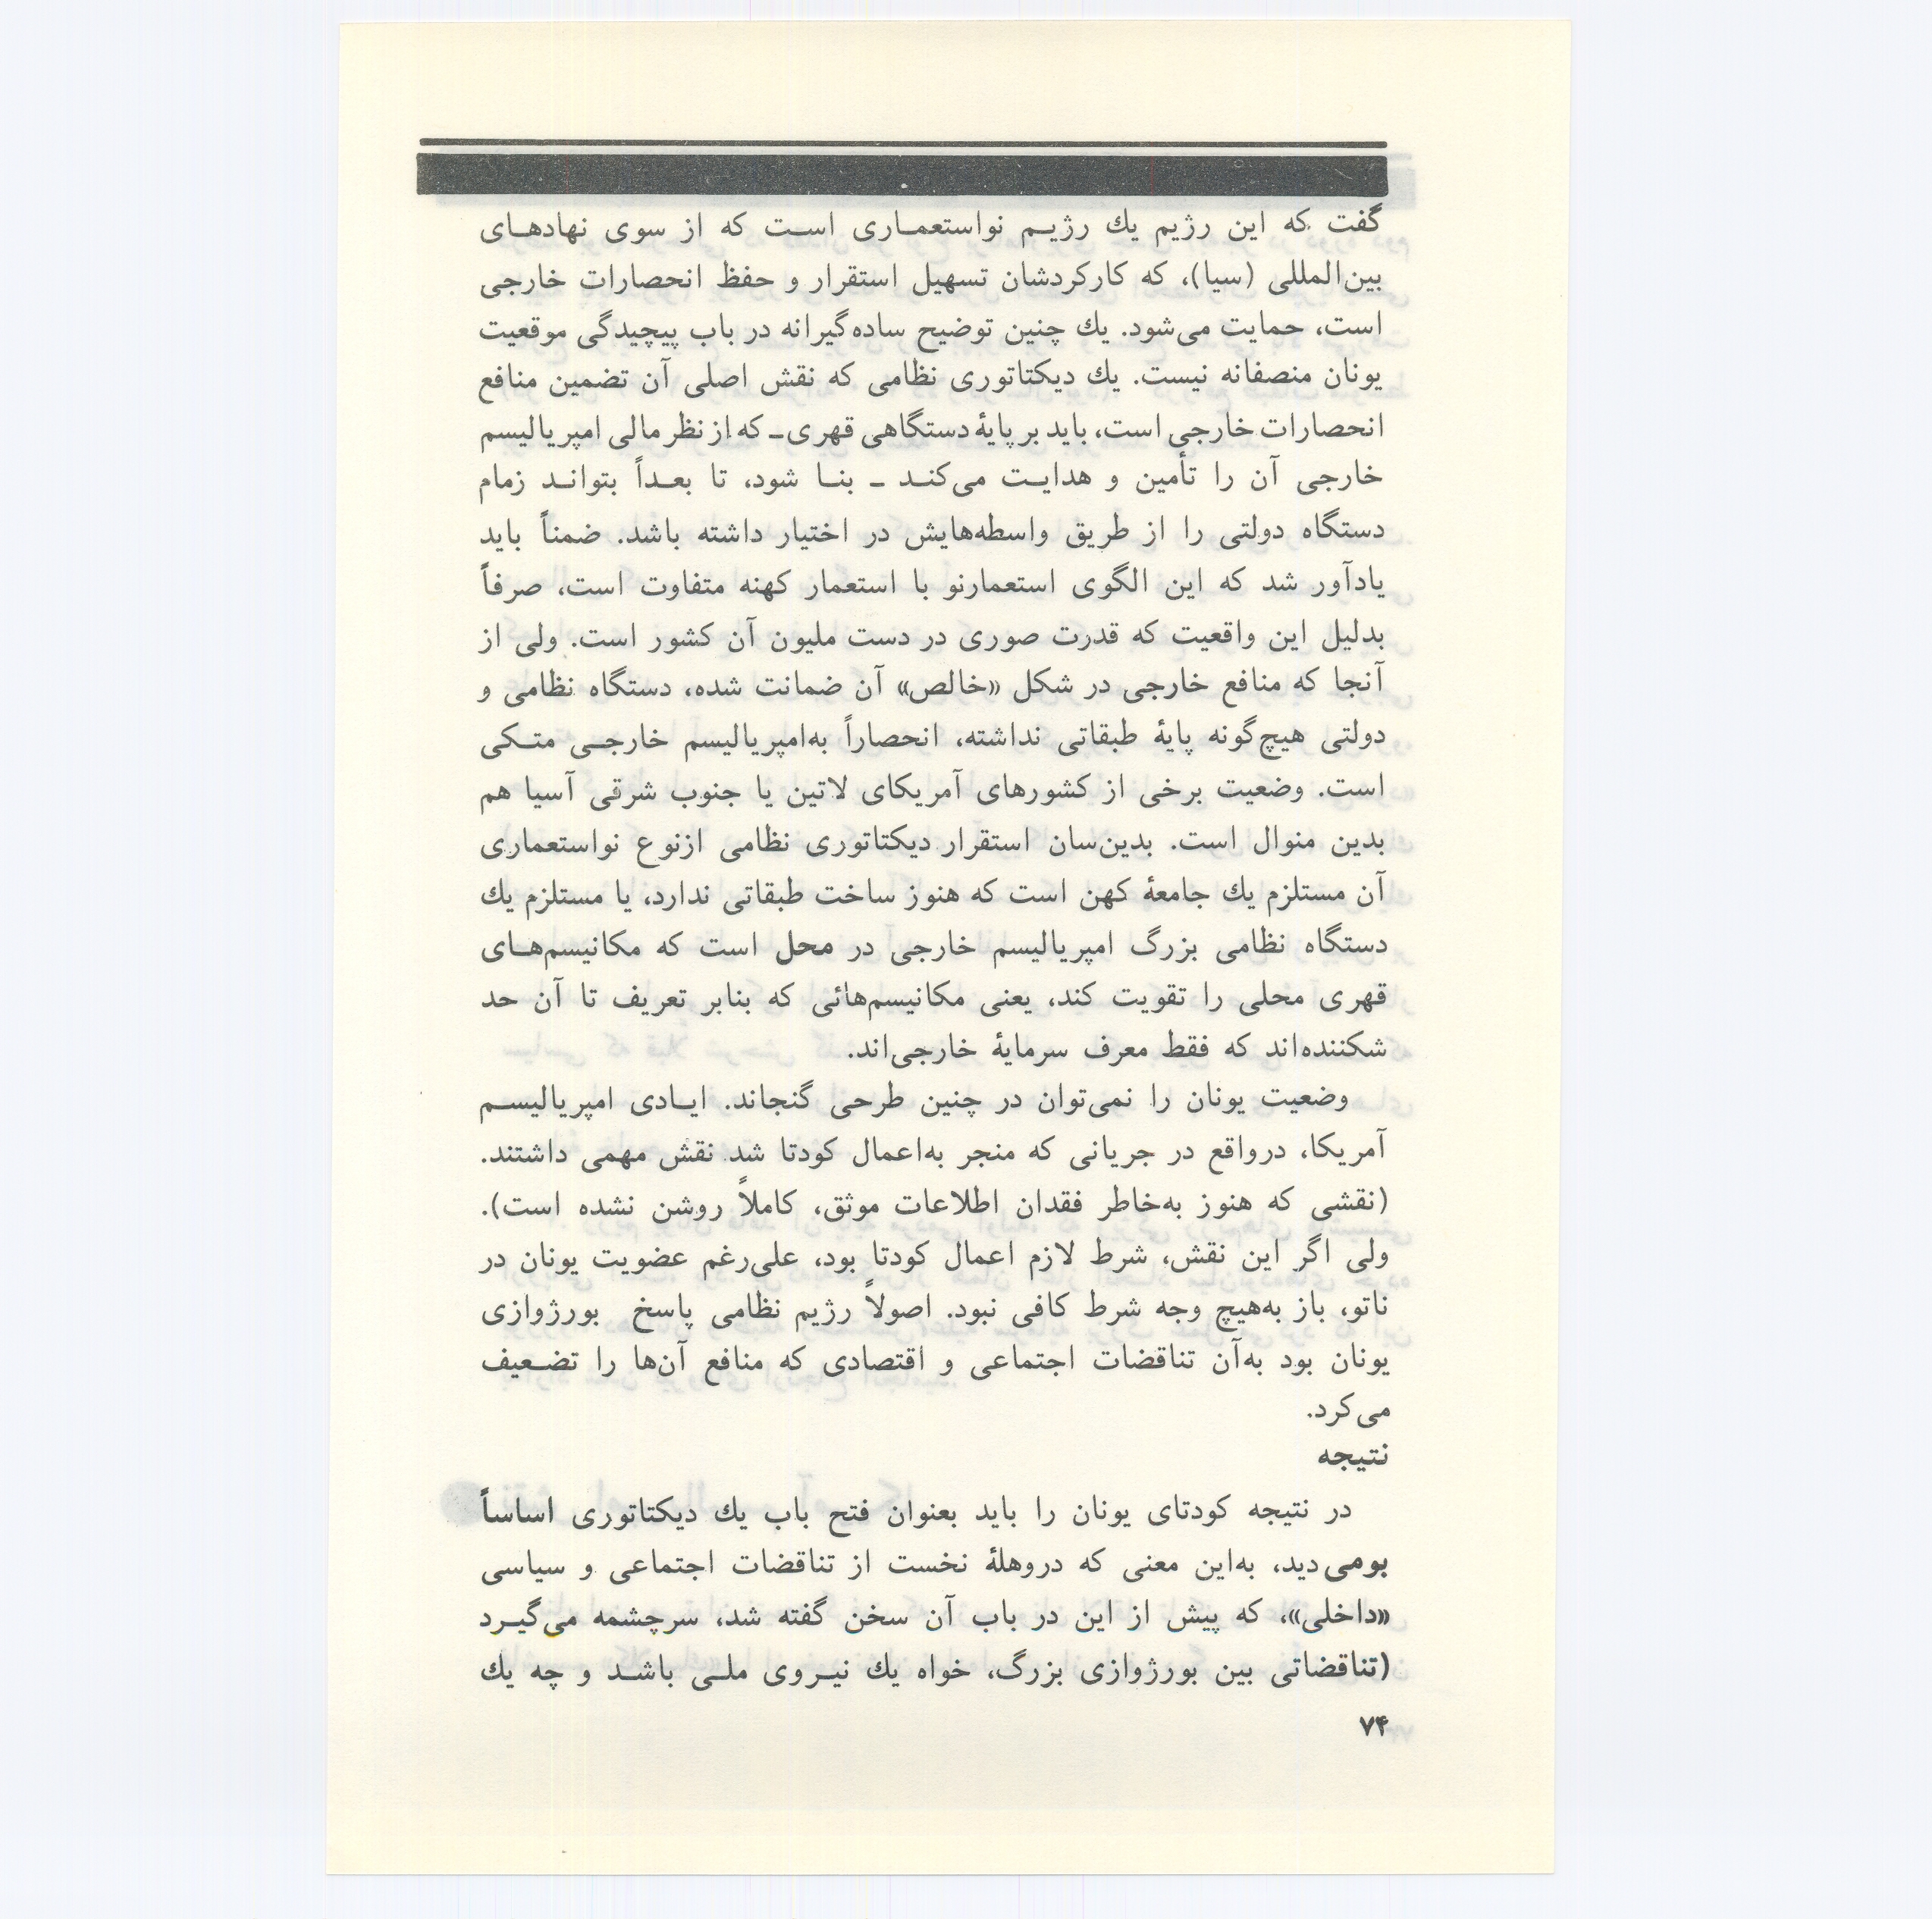 گفت که این رژیم یك رژیـم نواستعمـاری اسـت که از سوی نهادهـای
بین‌المللی (سیا)، که کارکردشان تسهیل استقرار و حفظ انحصارات خارجی
است، حمایت می‌شود. یك چنین توضیح ساده‌گیرانه در باب پیچیدگی موقعیت
یونان منصفانه نیست. یك دیکتاتوری نظامی که نقش اصلی آن تضمین منافع
انحصارات خارجی است، باید بر پایهٔ دستگاهی قهری ـ که از نظر مالی امپریالیسم
خارجی آن را تأمین و هدایـت می‌کنـد ـ بنـا شود، تا بعـداً بتوانـد زمام
دستگاه دولتی را از طریق واسطه‌هایش در اختیار داشته باشد. ضمناً باید
یادآور شد که این الگوی استعمارنو با استعمار کهنه متفاوت است، صرفاً
بدلیل این واقعیت که قدرت صوری در دست ملیون آن کشور است. ولی از
آنجا که منافع خارجی در شکل «خالص» آن ضمانت شده، دستگاه نظامی و
دولتی هیچ‌گونه پایهٔ طبقاتی نداشته، انحصاراً به‌امپریالیسم خارجـی متـکی
است. وضعیت برخی از کشورهای آمریکای لاتین یا جنوب شرقی آسیا هم
بدین منوال است. بدین‌سان استقرار دیکتاتوری نظامی ازنوع نواستعماری
آن مستلزم یك جامعهٔ کهن است که هنوز ساخت طبقاتی ندارد، یا مستلزم یك
دستگاه نظامی بزرگ امپریالیسم خارجی در محل است که مکانیسم‌هـای
قهری محلی را تقویت کند، یعنی مکانیسم‌هائی که بنابر تعریف تا آن حد
شکننده‌اند که فقط معرف سرمایهٔ خارجی‌اند.
وضعیت یونان را نمی‌توان در چنین طرحی گنجاند. ایـادی امپریالیسـم
آمریکا، درواقع در جریانی که منجر به‌اعمال کودتا شد نقش مهمی داشتند.
(نقشی که هنوز به‌خاطر فقدان اطلاعات موثق، کاملاً روشن نشده است).
ولی اگر این نقش، شرط لازم اعمال کودتا بود، علی‌رغم عضویت یونان در
ناتو، باز به‌هیچ وجه شرط کافی نبود. اصولاً رژیم نظامی پاسخ بورژوازی
یونان بود به‌آن تناقضات اجتماعی و اقتصادی که منافع آن‌ها را تضـعیف
می‌کرد.
نتیجه
در نتیجه کودتای یونان را باید بعنوان فتح باب یك دیکتاتوری اساساً
بومی دید، به‌این معنی که دروهلهٔ نخست از تناقضات اجتماعی و سیاسی
«داخلی»، که پیش از این در باب آن سخن گفته شد، سرچشمه می‌گیـرد
(تناقضاتی بین بورژوازی بزرگ، خواه یك نیـروی ملـی باشـد و چه یك
۷۴